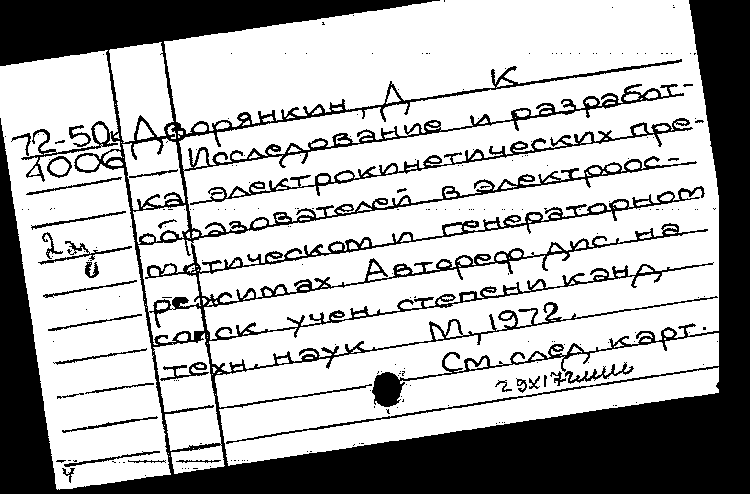 72-50к Дворянкин, Д К
4006 Исследование и разработ-
ка электрокинетических пре-
образователей в электроос-
2 эк.
мотическом и генераторном
режимах. Автореф. дис. на
соиск. учен. степени канд.
техн. наук. М., 1972.
См. след. карт.